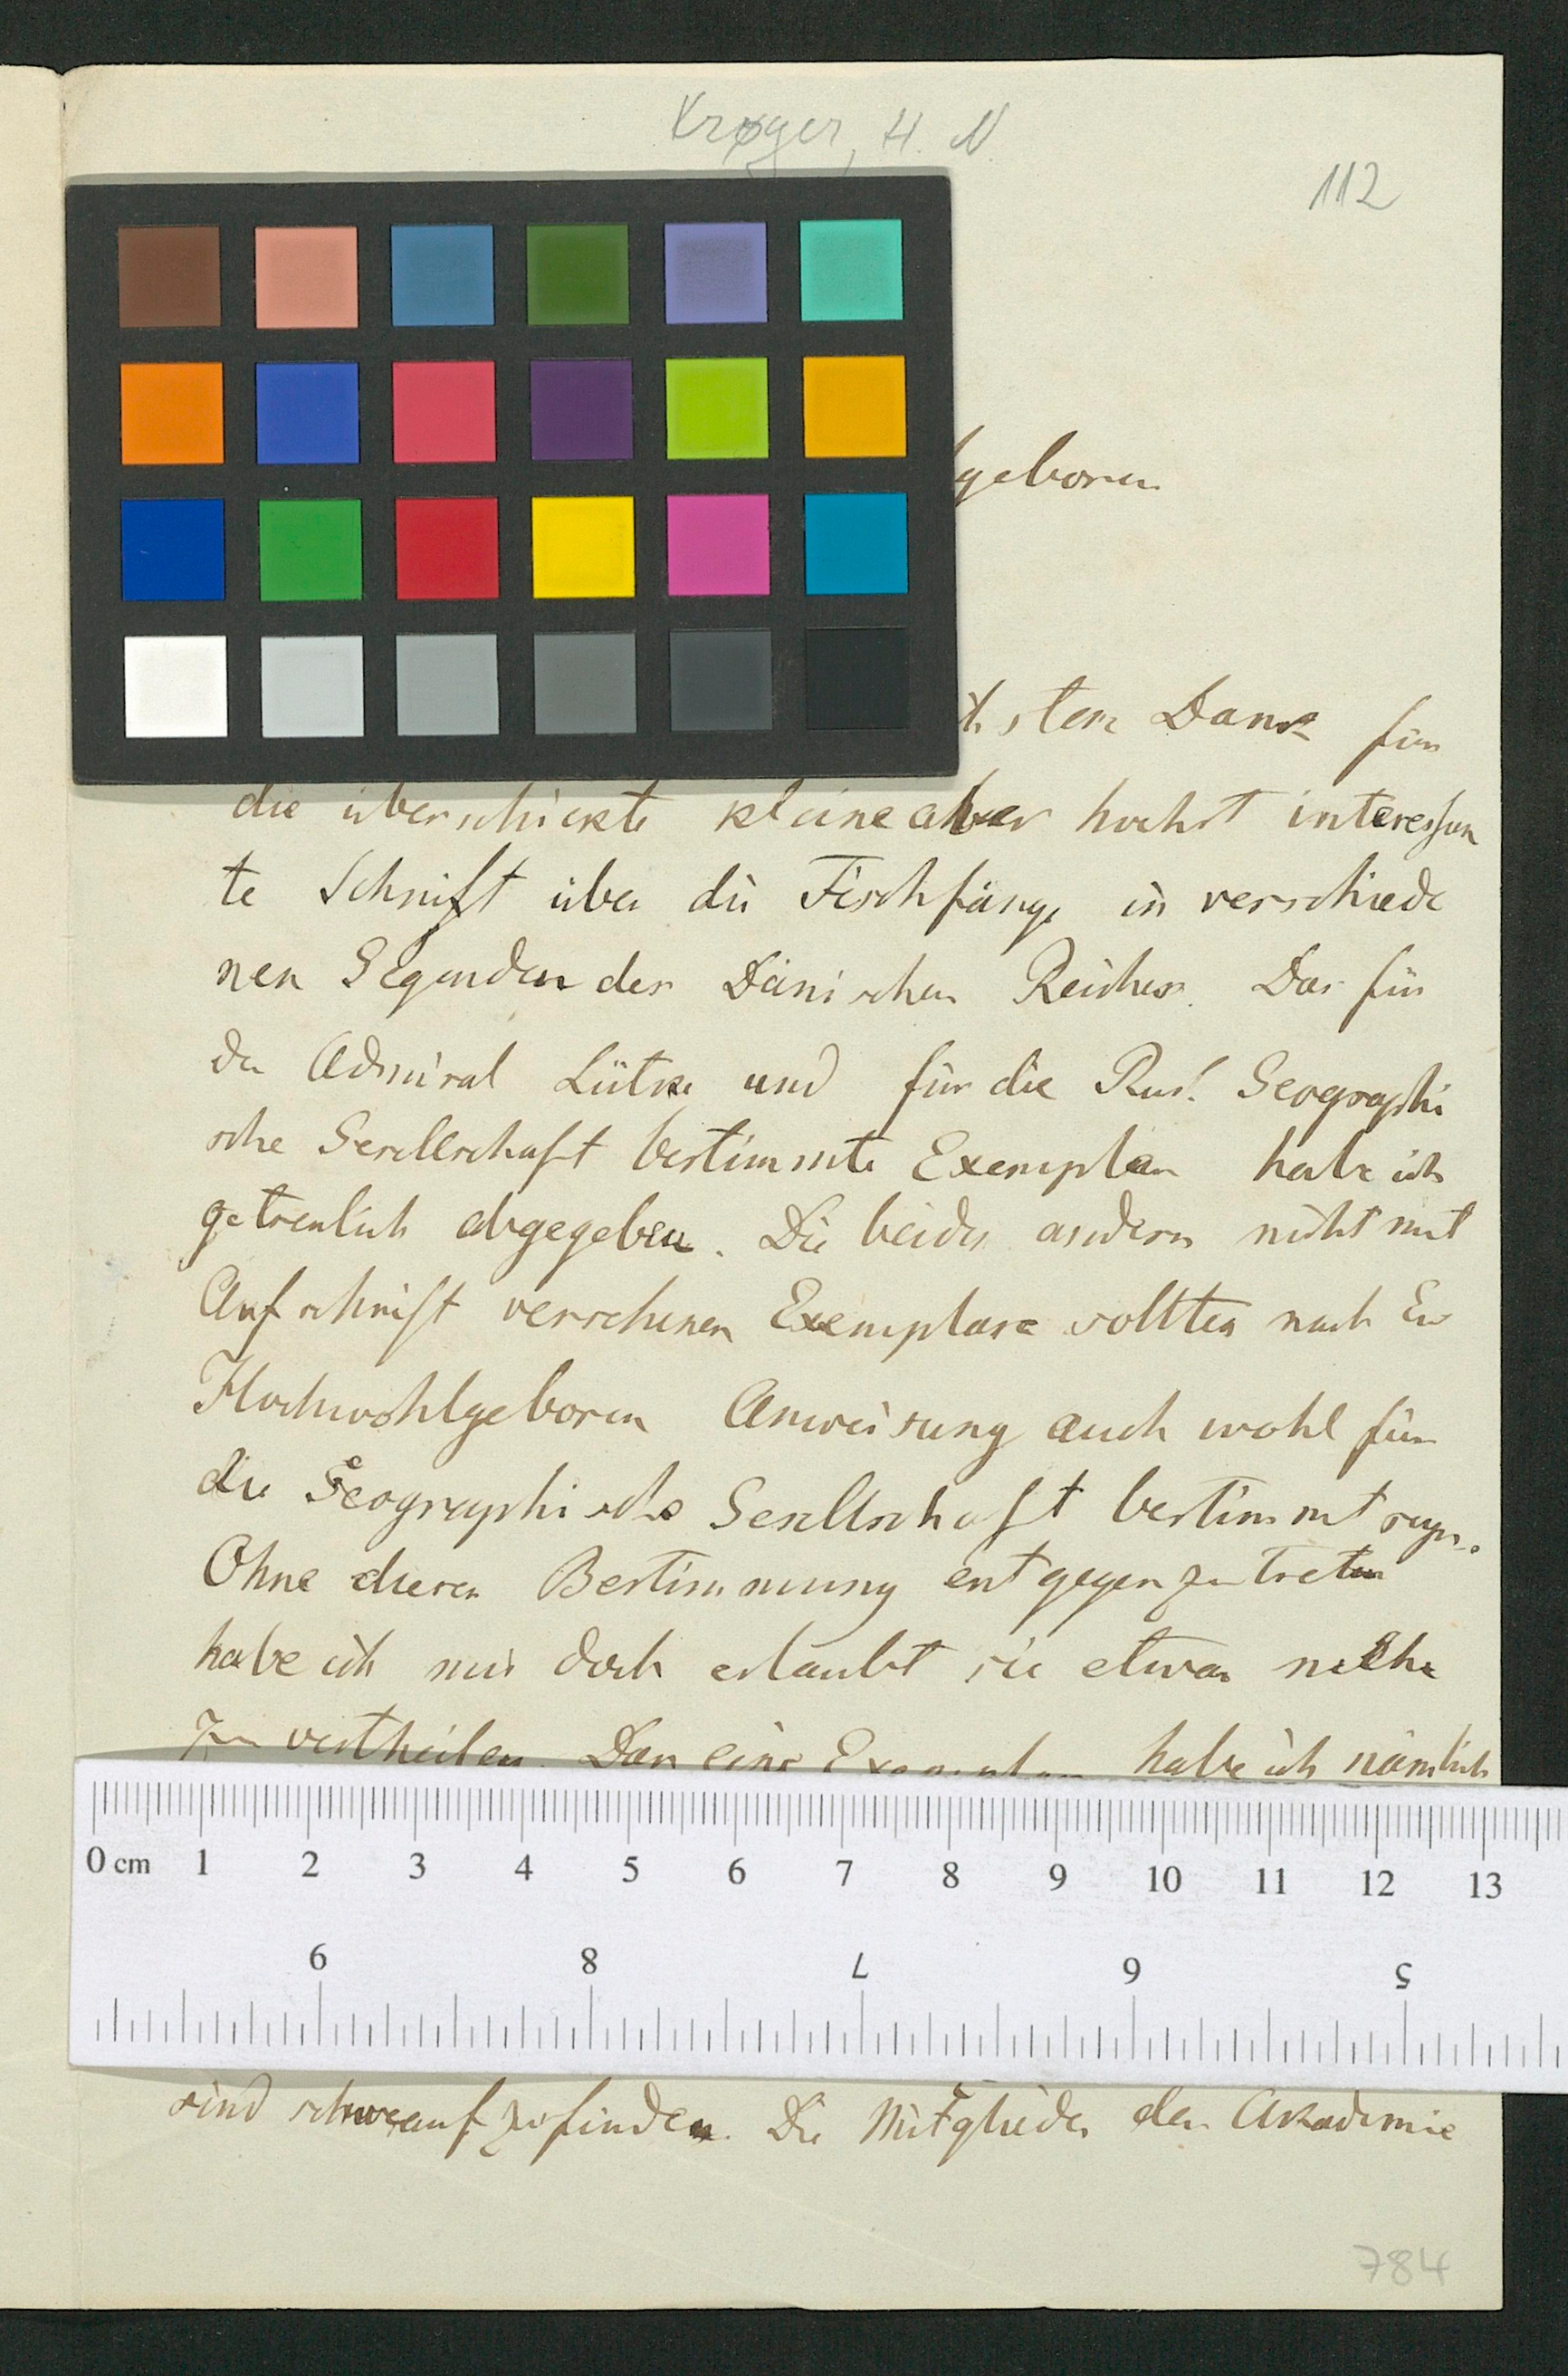 Krøyer, H. N.
112
geboren
sten Dank für
die überschickte kleine aber höchst interessan
te Schrift über die Fischfänge in verschiede
nen Gegenden des Dänischen Reiches. Das für
den Admiral Lütke und für die Rus. Geographi
sche Gesellschaft bestimmte Exemplar habe ich
getreulich abgegeben. Die beiden andern nicht mit
Aufschrift versehenen Exemplare sollten nach Ew
Hochwohlgeboren Anweisung auch wohl für
die Geographische Gesellschaft bestimmt seyn.
Ohne dieser Bestimmung entgegenzutreten
habe ich mir doch erlaubt sie etwas
zu vertheilen. Das eine Exemplar habe ich nämlich
0 cm 1 2 3 4 5 6 7 8 9 10 11 12 13
9 8 7 6 5
sind schwer aufzufinden. Die Mitglieder der Akademie
784